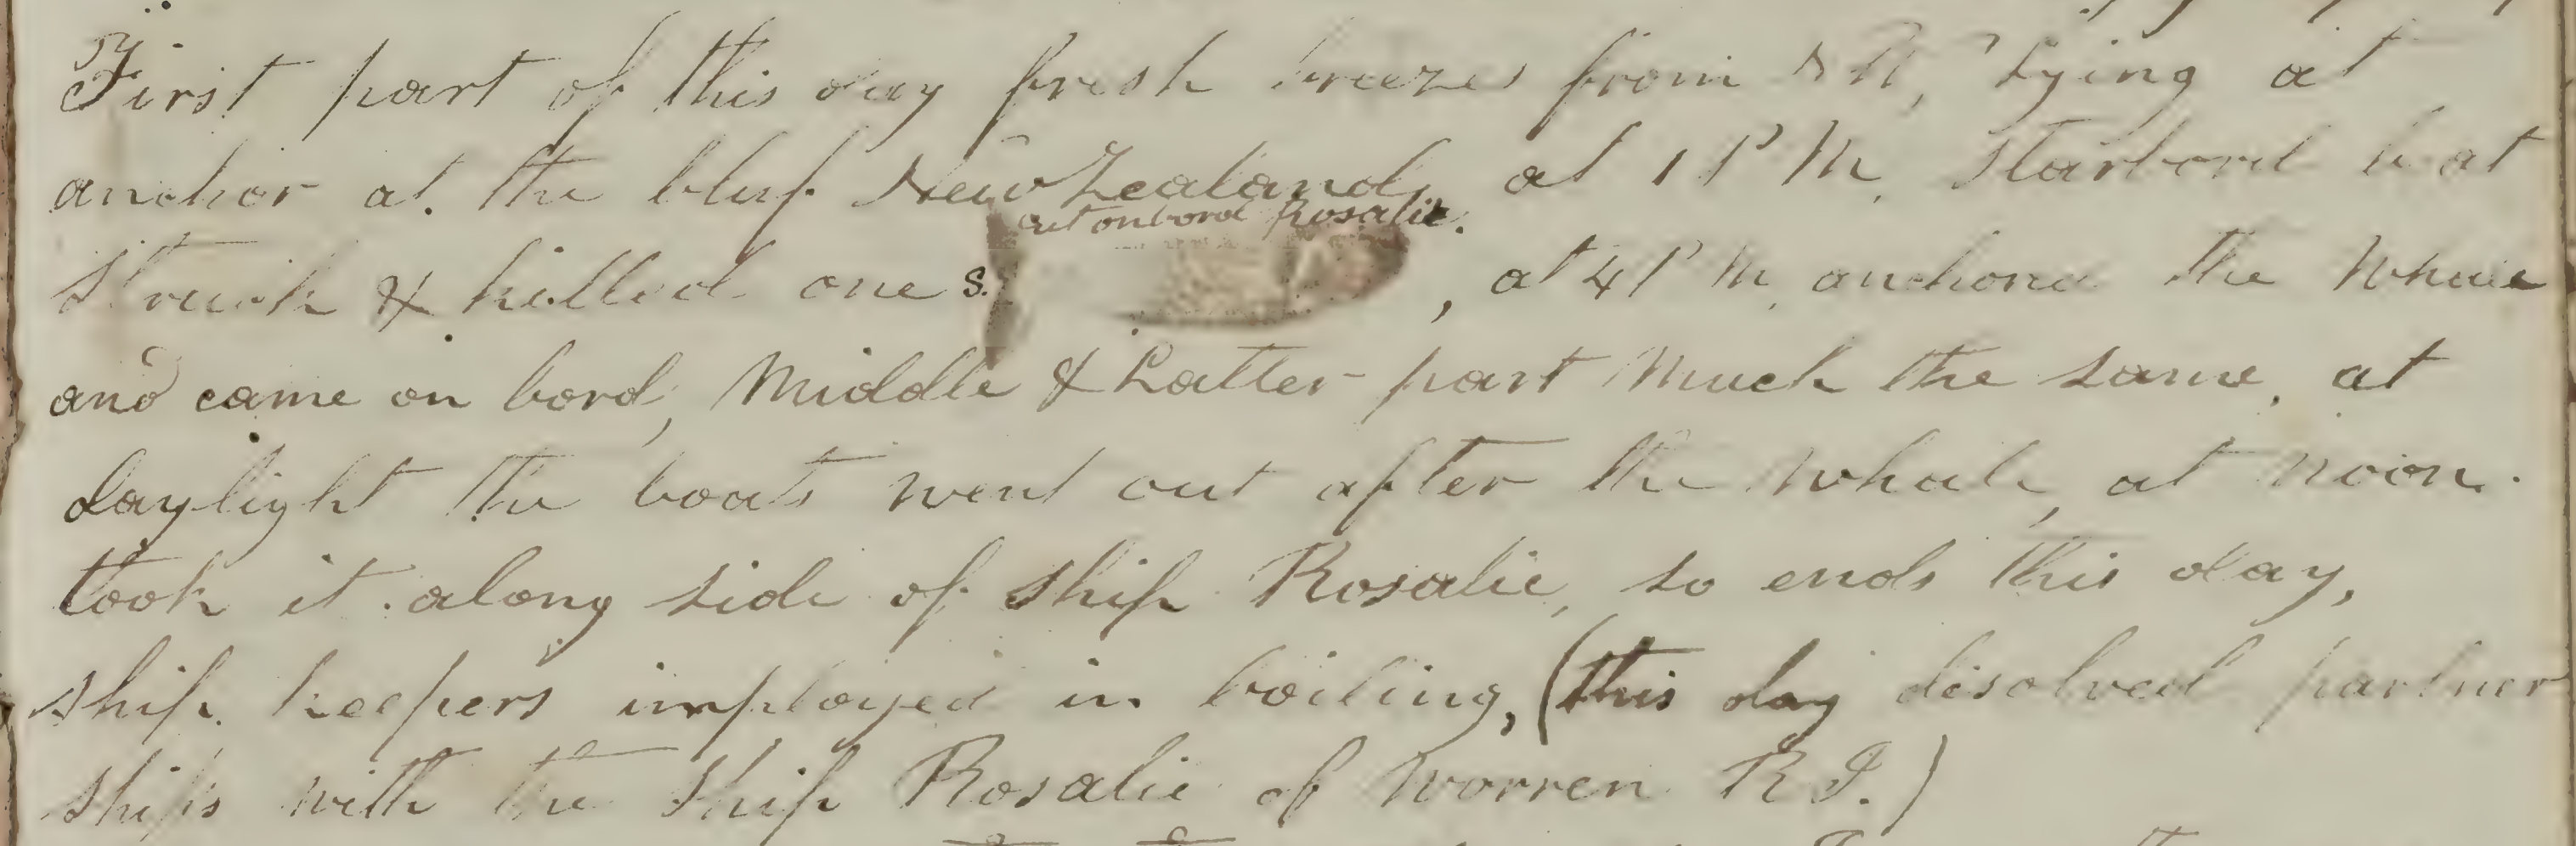 First part of this day fresh breezes from N N, Lying at
anchor at the bluf New Zealand, at 1 P M starbord boat
cut onbord Rosalie.
Struck & killed one s. , at 4 P M anchord the Whale
and came on bord, Middle & Latter part Much the same, at
daylight the boats went out after the Whale, at noon.
took it along side of ship Rosalie, so ends this day,
ship keepers imployed in boiling, (this day disolved partner
ships with the ship Rosalie of Worren R I.)